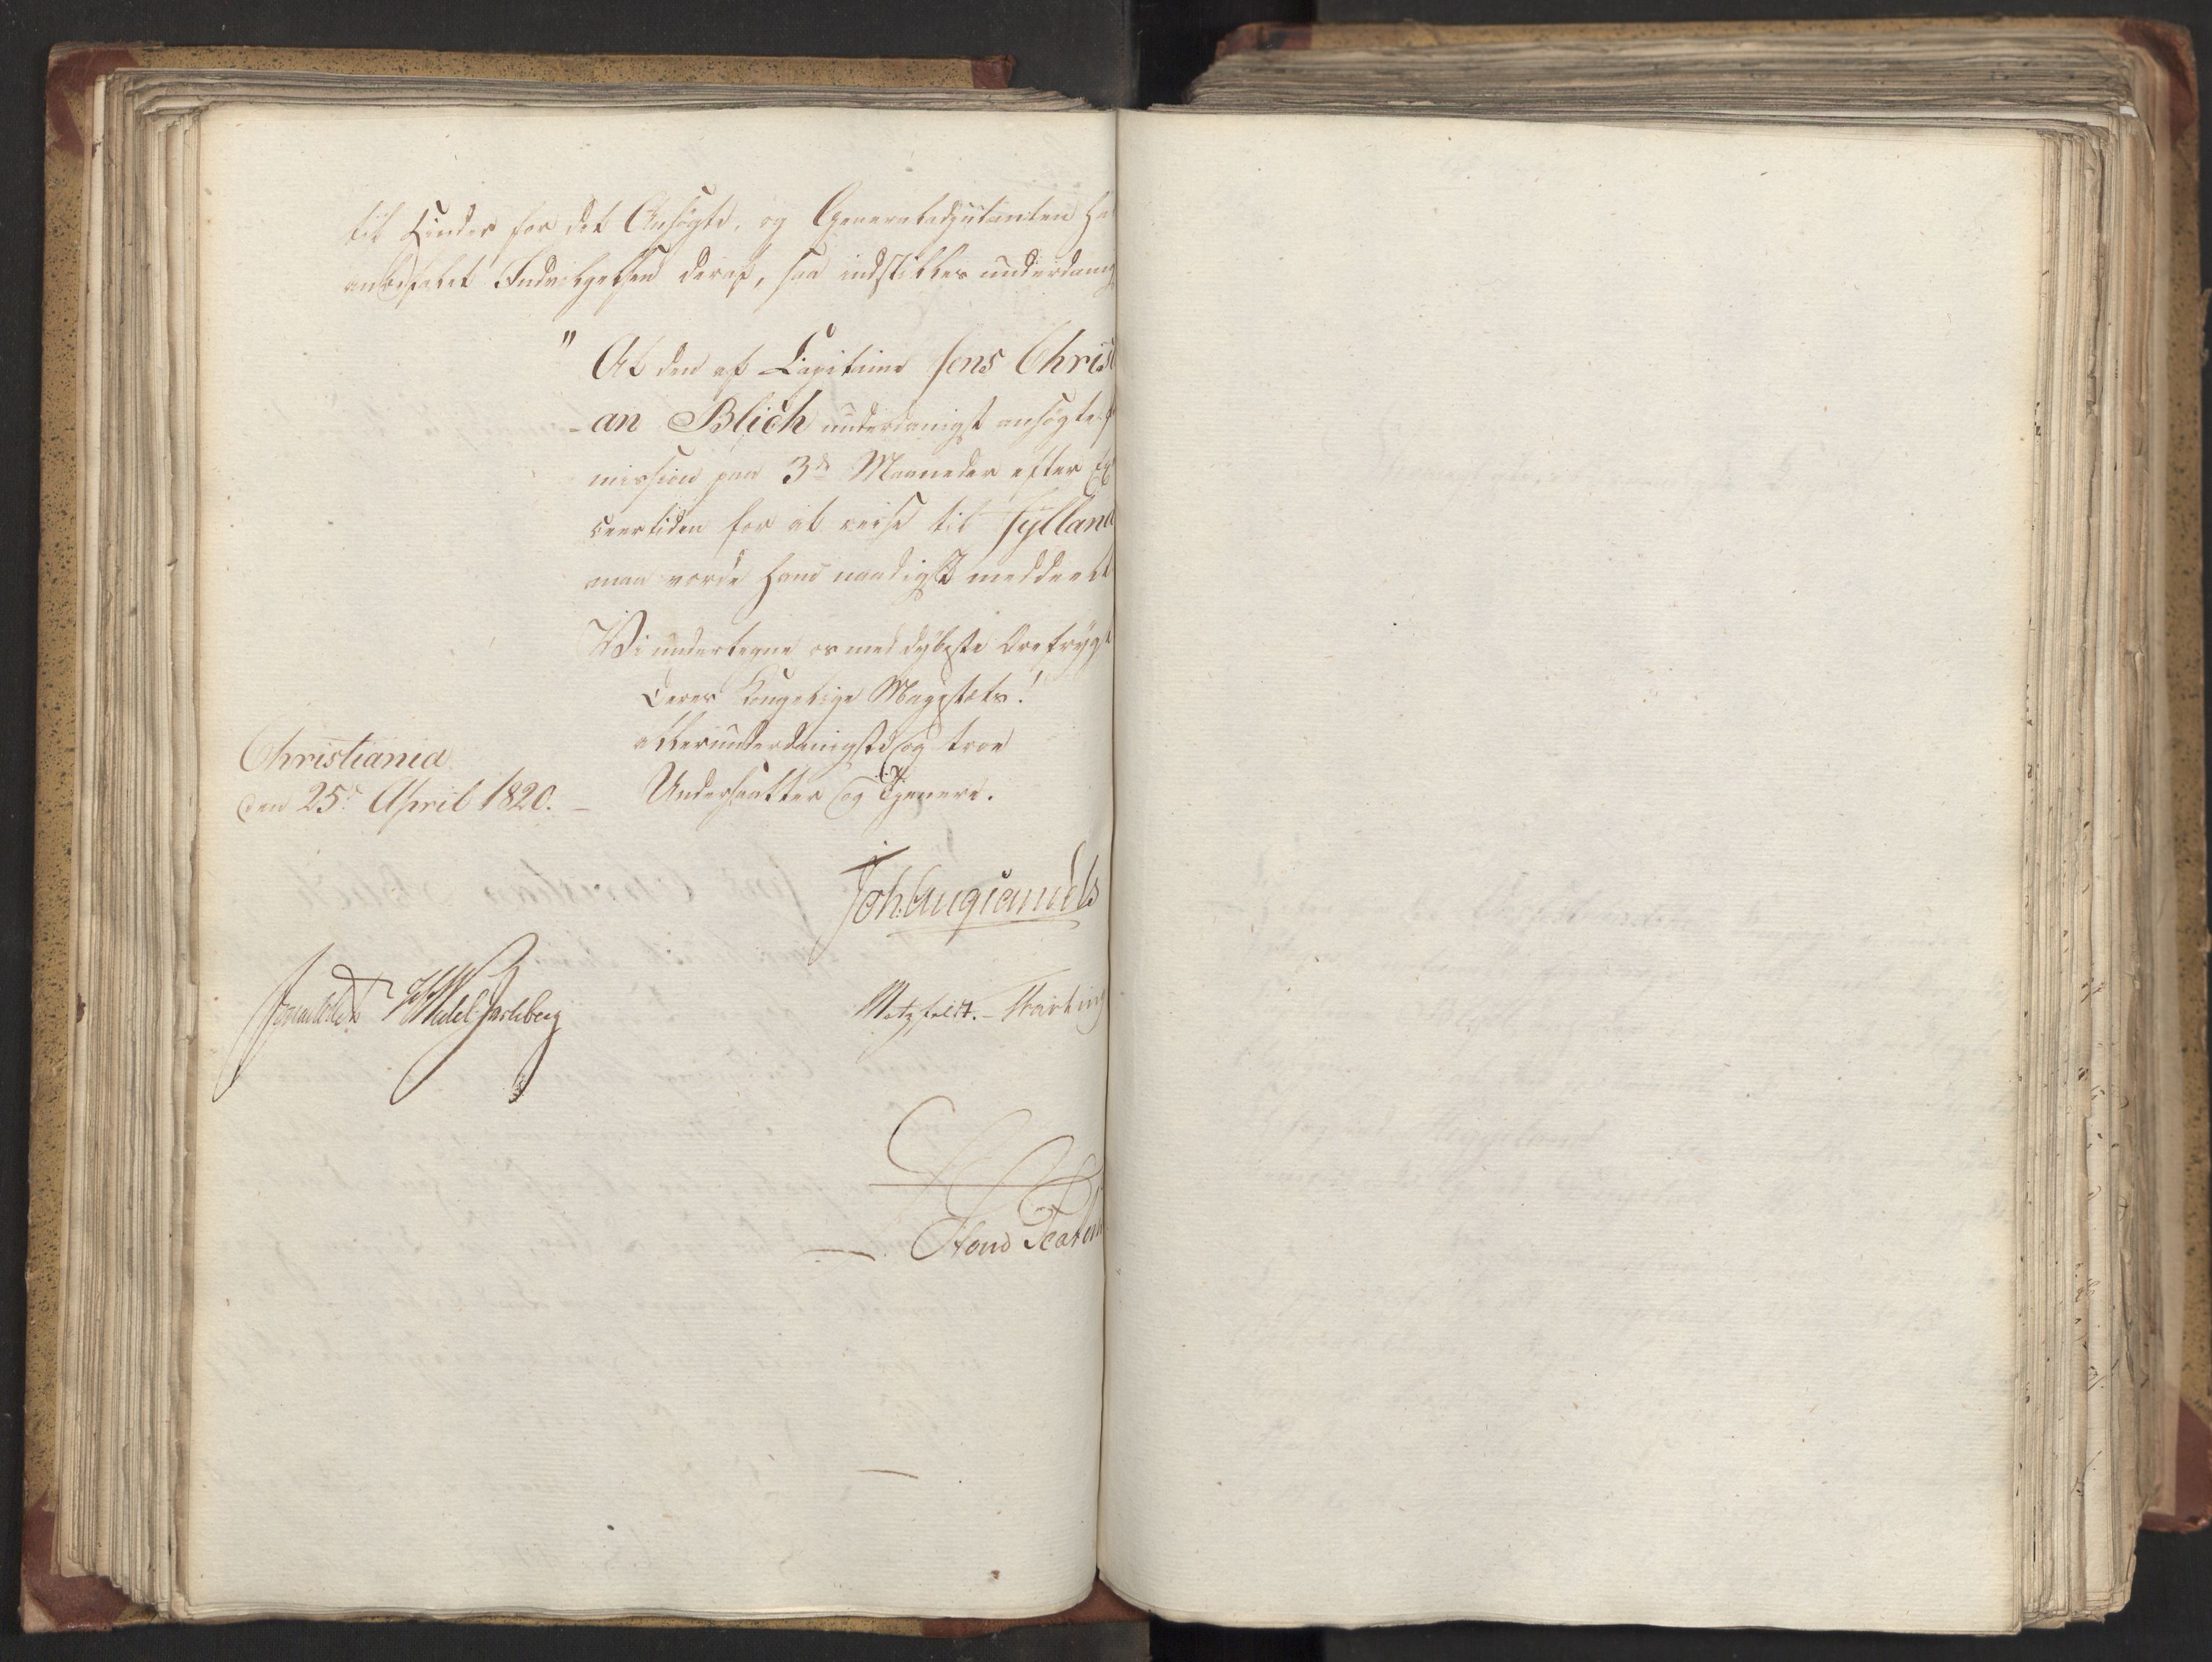 til Hinder for det Ansøgte, og Generaladjutanten ha
anbefalet Indvilgelsen deraf, saa indstilles underdanig
" At den af Capitaine Jens Christ
-an Blich underdanigst ansøgte
mission paa 3de Maaneder efter Ex
ceertiden for at reise til Jylland
maa vorde ham naadigst meddeelt
Vi undertegne os med dybeste Ærefrygt
Deres Kongelige Majestæts!
allerunderdanigste og troe
Undersaatter og Tjenere.
Christiania
den 25d April 1820. –
Joh: Aug Sandels
Sommerhielm HWedel Jarlsberg
Motzfeldt. – Krebting